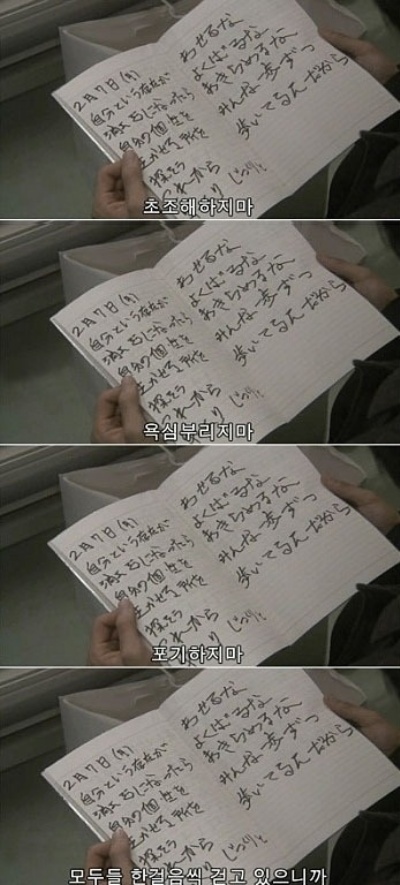 2月7日
自分という存在が
になったら
自分の個性を
探そう
これから
じっくり
あせるな
よくばるな
あきらめるな
みんな一歩ずつ
歩いてるんだから
초조해하지마
2月7日
自分という存在が
になったら
自分の個性を
探そう
これから
じっくり
あせるな
よくばるな
あきらめるな
みんな一歩ずつ
歩いてるんだから
욕심부리지마
2月7日
自分という存在が
になったら
自分の個性を
探そう
これから
じっくり
あせるな
よくばるな
あきらめるな
みんな一歩ずつ
歩いてるんだから
포기하지마
2月7日
自分という存在が
になったら
自分の個性を
探そう
これから
じっくり
あせるな
よくばるな
あきらめるな
みんな一歩ずつ
歩いてるんだから
모두들 한걸음씩 걷고 있으니까